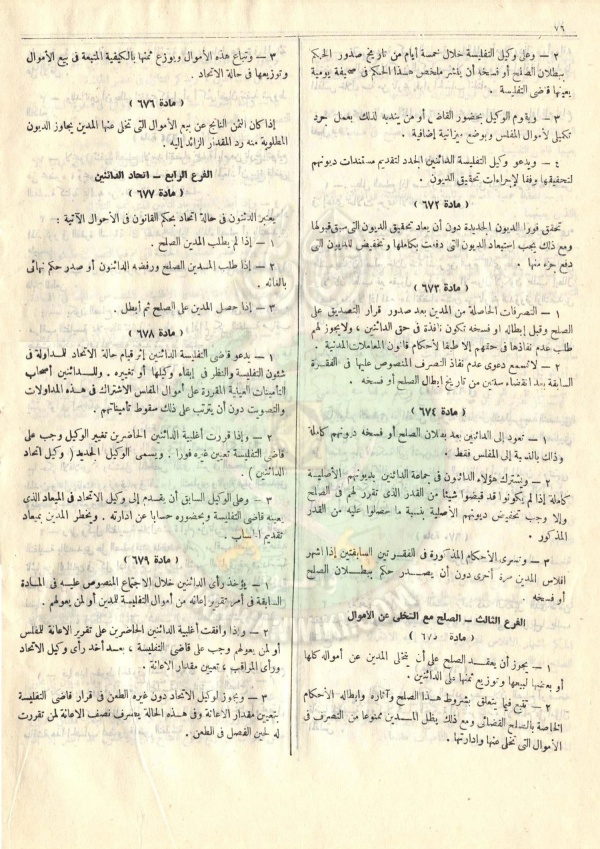 ٧٦
٢ – وعلى وكيل التفليسة خلال خمسة أيام من تاريخ صدور الحكم
ببطلان الصلح أو فسخه أن ينشر ملخص هذا الحكم في صحيفة يومية
يعينها قاضى التفليسة .
٣ – ويقوم الوكيل بحضور القاضى أو من يندبه لذلك بعمل جرد
تكميلى لأموال المفلس وبوضع ميزانية إضافية .
٤ – ويدعو وكيل التفليسة الدائنين الجدد لتقديم مستندات ديونهم
لتحقيقها وفقا لإجراءات تحقيق الديون .
( مادة ٦٧٢ )
تحقق فورا الديون الجديدة دون أن يعاد تحقيق الديون التى سبق قبولها
ومع ذلك يجب استبعاد الديون التى دفعت بكاملها وتخفيض الديون التى
دفع جزء منها .
( مادة ٦٧٣ )
١ – التصرفات الحاصلة من المدين بعد صدور قرار التصديق على
الصلح وقبل إبطاله او فسخه تكون نافذة فى حق الدائنين ، ولا يجوز لهم
طلب عدم نفاذها فى حقهم إلا طبقا لأحكام قانون المعاملات المدنية
٢ – لاتسمع دعوى عدم نفاذ التصرف المنصوص عليها فى الفقرة
السابقة بعد انقضاء سنتين من تاريخ إبطال الصلح أو فسخه .
( مادة ٦٧٤ )
١ – تعود إلى الدائنين بعد بطلان الصلح أو فسخه ديونهم كاملة
وذلك بالنسبة إلى المفلس فقط .
٢ – ويشترك هؤلاء الدائنون فى جماعة الدائنين بديونهم الأصلية
كاملة إذا لم يكونوا قد قبضوا شيئا من القدر الذى تقرر لهم فى الصلح
وإلا وجب تخفيض ديونهم الأصلية بنسبة ما حصلوا عليه من القدر
المذكور .
٣ – وتسرى الأحكام المذكورة فى الفقرتين السابقتين إذا اشهر
افلاس المدين مرة أخرى دون أن يصدر حكم ببطلان الصلح
أو فسخه .
الفرع الثالث – الصلح مع التخلى عن الأموال
( مادة ٦٧٥ )
١ – يجوز أن يعقد الصلح على أن يتخلى المدين عن أمواله كلها
أو بعضها لبيعها وتوزيع ثمنها على الدائنين .
٢ – تتبع فيما يتعلق بشروط هذا الصلح وآثاره وإبطاله الأحكام
الخاصة بالصلح القضائى ومع ذلك يظل المدين ممنوعا من التصرف فى
الأموال التى تخلى عنها وادارتها .
٣ – وتباع هذه الأموال ويوزع ثمنها بالكيفية المتبعة فى بيع الأموال
وتوزيعها فى حالة الاتحاد .
( مادة ٦٧٦ )
إذا كان الثمن الناتج عن بيع الأموال التى تخلى عنها المدين يجاوز الديون
المطلوبة منه رد المقدار الزائد إليه .
الفرع الرابع – اتحاد الدائنين
( مادة ٦٧٧ )
يعتبر الدائنون فى حالة اتحاد بحكم القانون فى الأحوال الآتية :
١ – إذا لم يطلب المدين الصلح .
٢ – إذا طلب المدين الصلح ورفضه الدائنون أو صدر حكم نهائى
بالغائه .
٣ – إذا حصل المدين على الصلح ثم أبطل .
( مادة ٦٧٨ )
١ – يدعو قاضى التفليسة الدائنين إثر قيام حالة الاتحاد للمداولة فى
شئون التفليسة والنظر فى إبقاء وكيلها أو تغييره . وللدائنين أصحاب
التأمينات العينية المقررة على أموال المفلس الاشتراك فى هذه المداولات
والتصويت دون أن يترتب على ذلك سقوط تأميناتهم .
٢ – وإذا قررت أغلبية الدائنين الحاضرين تغيير الوكيل وجب على
قاضى التفليسة تعيين غيره فورا . ويسمى الوكيل الجديد ( وكيل اتحاد
الدائنين ) .
٣ – وعلى الوكيل السابق أن يقدم إلى وكيل الاتحاد فى الميعاد الذى
يعينه قاضى التفليسة وبحضوره حسابا عن ادارته . ويخطر المدين بميعاد
تقديم الحساب .
( مادة ٦٧٩ )
١ – يؤخذ رأى الدائنين خلال الاجتماع المنصوص عليه فى المادة
السابقة فى أمر تقرير إعانه من أموال التفليسة للمدين أو لمن يعولهم .
٢ – وإذا وافقت أغلبية الدائنين الحاضرين على تقرير الاعانة للمفلس
أو لمن يعولهم وجب على قاضى التفليسة ، بعد أخذ رأى وكيل الاتحاد
ورأى المراقب ، تعيين مقدار الاعانة .
٣ – ويجوز لوكيل الاتحاد دون غيره الطعن فى قرار قاضى التفليسة
بتعيين مقدار الاعانة وفى هذه الحالة يصرف نصف الاعانة لمن تقررت
له لحين الفصل فى الطعن .